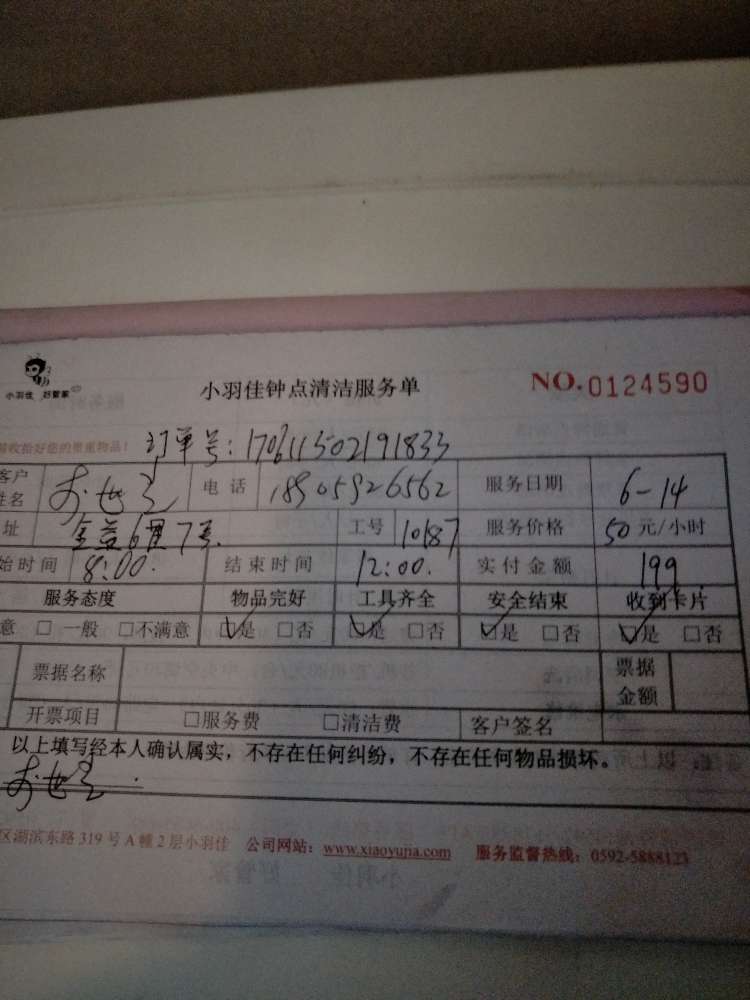 小羽佳 好管家
小羽佳钟点清洁服务单 NO.0124590
收拾好您的贵重物品! 订单号:170611502191833
客户姓名 电话 18905926562 服务日期 6-14
址 7号 工号 10187 服务价格 50元/小时
始时间 8:00 结束时间 12:00. 实付金额 199
服务态度 物品完好 工具齐全 安全结束 收到卡片
意 □一般 □不满意 ☑是 □否 ☑是 □否 ☑是 □否 ☑是 □否
票据名称 票据金额
开票项目 □服务费 □清洁费 客户签名
以上填写经本人确认属实,不存在任何纠纷,不存在任何物品损坏。
区湖滨东路319号A幢2层小羽佳 公司网站:www.xiaoyujia.com 服务监督热线:0592-5888123